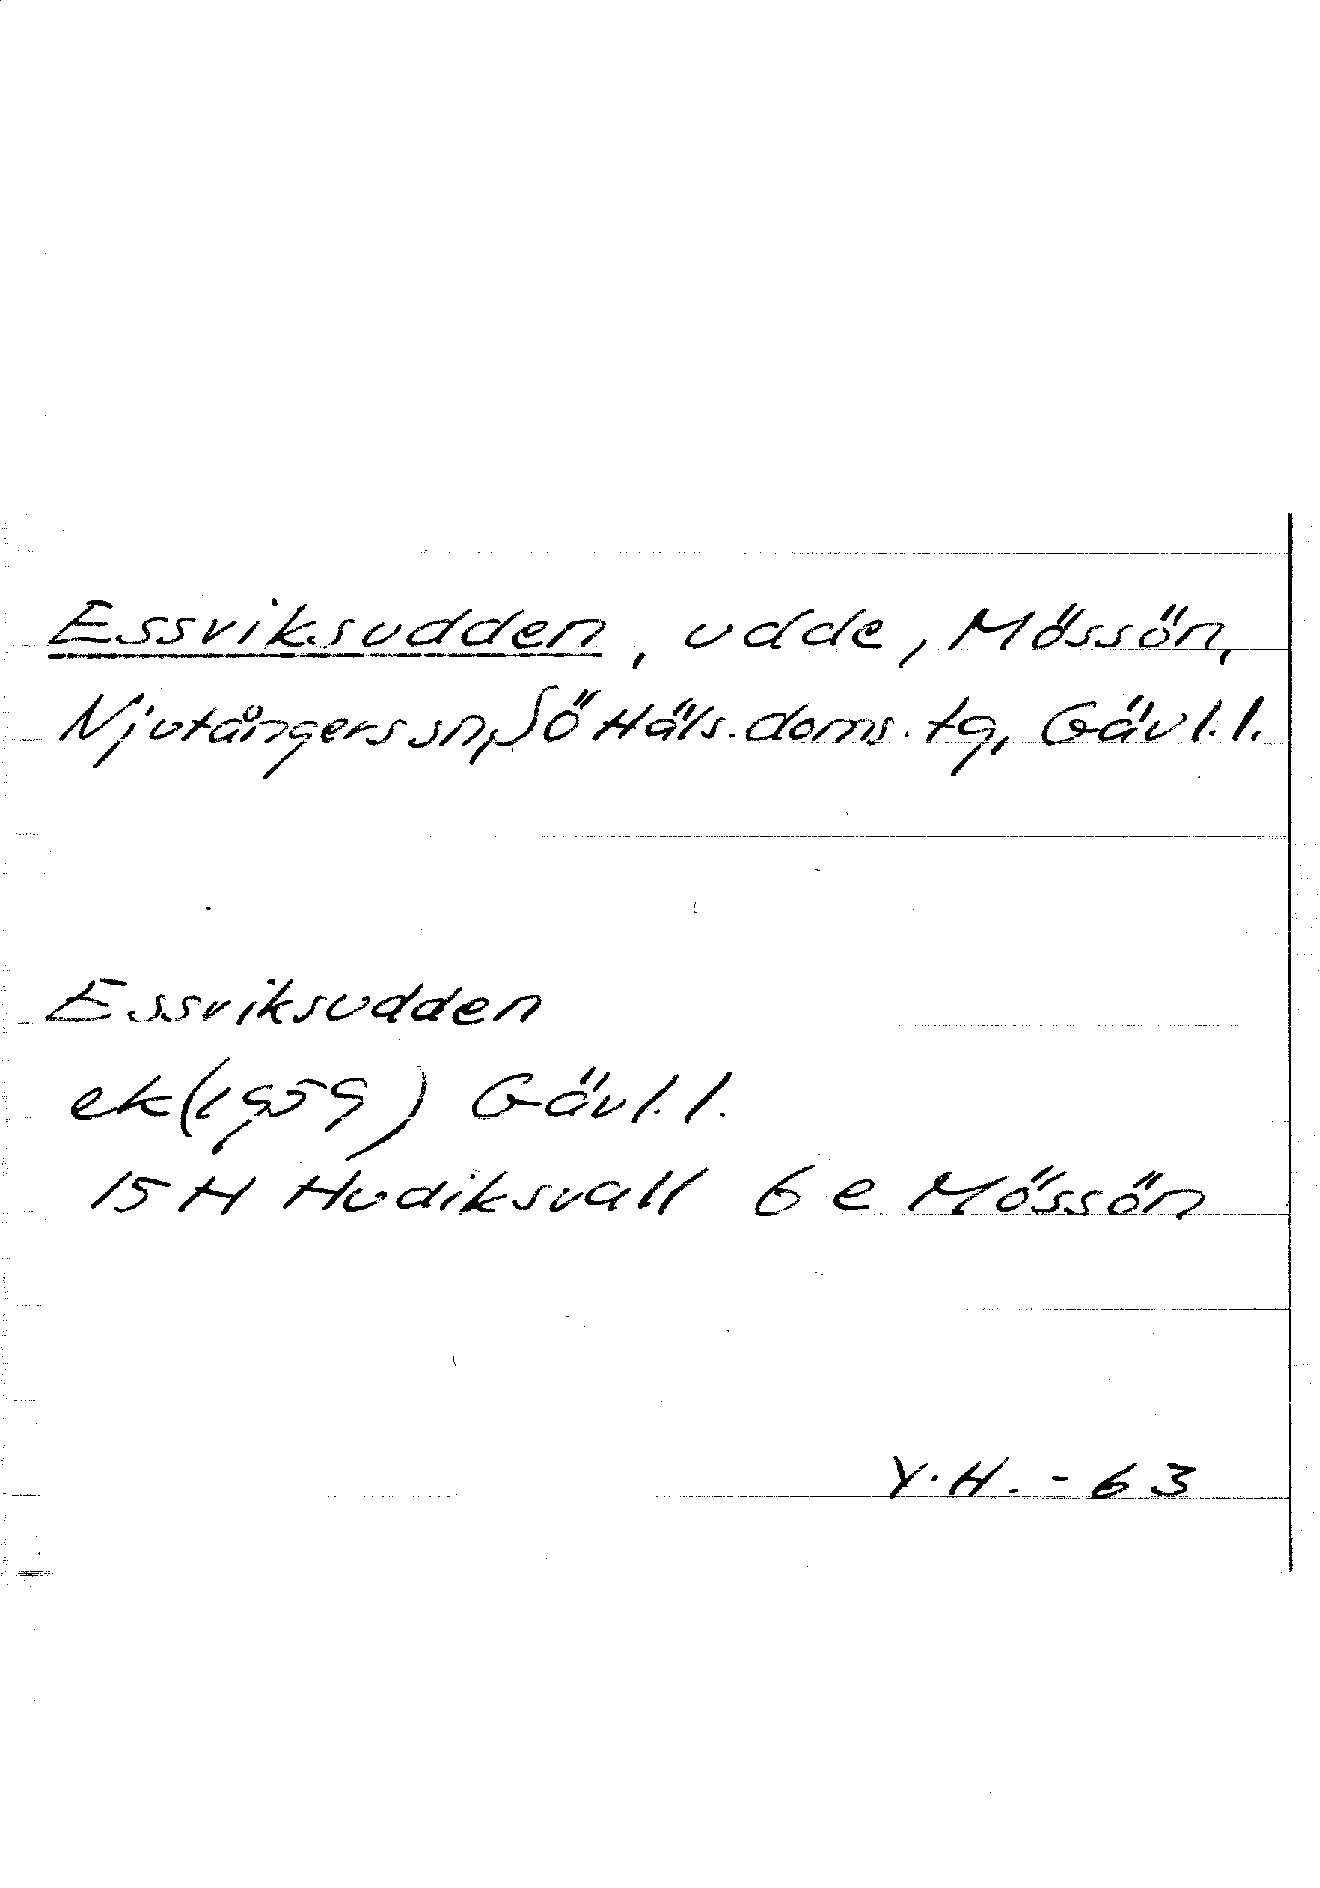 Essviksudden, udde, Mössön,
Njutångers sn, Sö Häls. doms. tg, Gävl. l.
Essviksudden
ek (1959) Gävl. l.
15 H Hudiksvall 6 e Mössön
Y. H. - 63